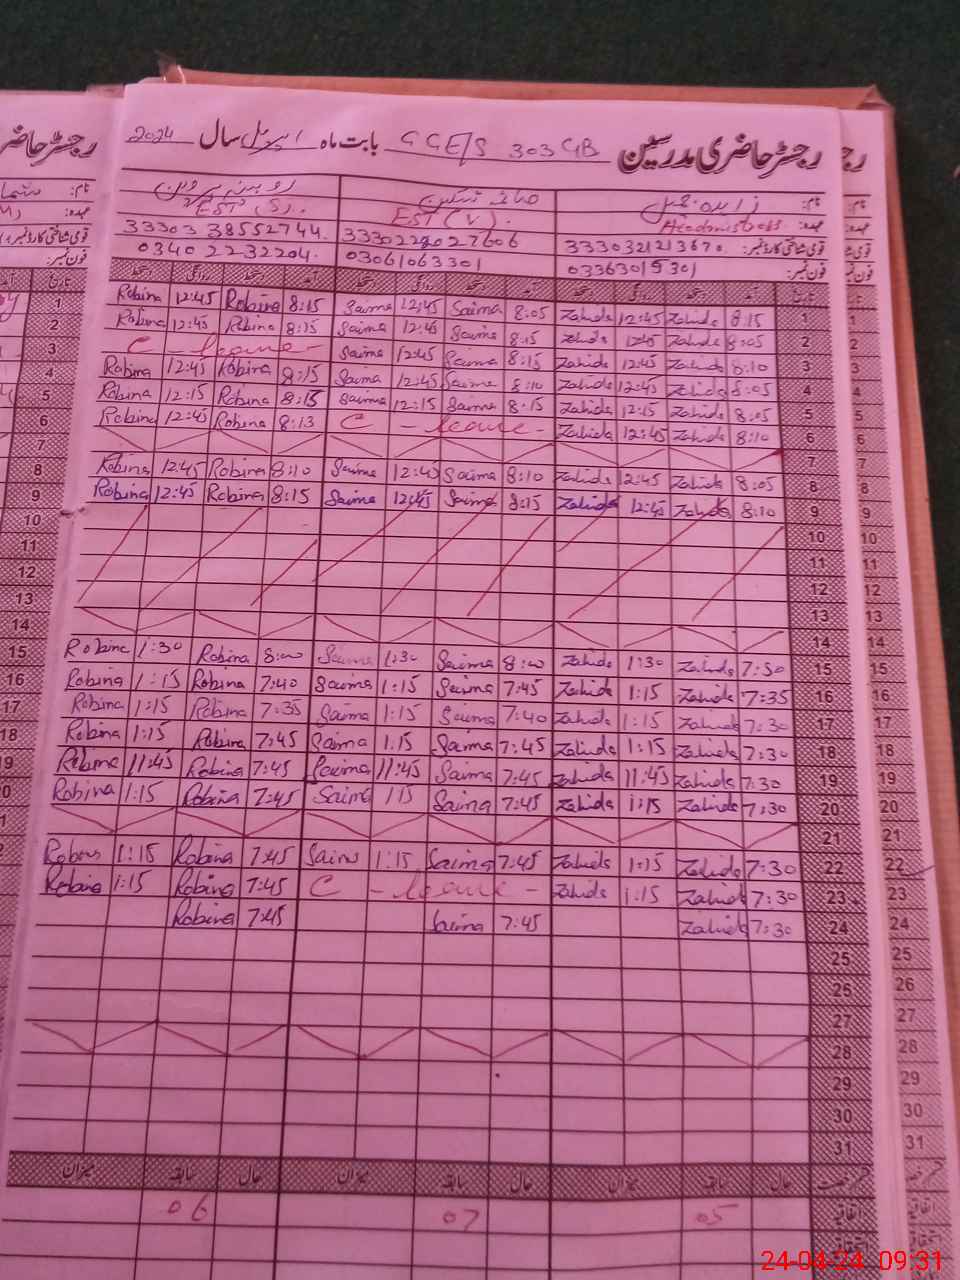 رجسٹر حاضری مدرسین GGE/S 303 GB بابت ماہ اپریل سال 2024
نام: زاہدہ نام: صائمہ روبینہ پروین
عہدہ: Headmistress EST (V). EST (S).
قومی شناختی کارڈ نمبر: 3330321213670 3330227606 33303 38552744
فون نمبر: 03363015301 03061063301 0340 2232204.
Robina 12:45 Robina 8:15 Saima 12:45 Saima 8:05 Zahida 12:45 Zahida 8:15 1
Robina 12:45 Robina 8:15 Saima 12:45 Saima 8:15 Zahida 12:45 Zahida 8:05 2
C - leave - Saima 12:45 Saima 8:15 Zahida 12:45 Zahida 8:10 3
Robina 12:45 Robina 8:15 Saima 12:45 Saima 8:10 Zahida 12:45 Zahida 8:05 4
Robina 12:15 Robina 8:15 Saima 12:15 Saima 8:15 Zahida 12:15 Zahida 8:05 5
Robina 12:45 Robina 8:13 C - leave - Zahida 12:45 Zahida 8:10 6
7
Robina 12:45 Robina 8:10 Saima 12:45 Saima 8:10 Zahida 12:45 Zahida 8:05 8
Robina 12:45 Robina 8:15 Saima 12:45 Saima 8:15 Zahida 12:45 Zahida 8:10 9
10
11
12
13
14
Robina 1:30 Robina 8:00 Saima 1:30 Saima 8:00 Zahida 1:30 Zahida 7:50 15
Robina 1:15 Robina 7:40 Saima 1:15 Saima 7:45 Zahida 1:15 Zahida 7:35 16
Robina 1:15 Robina 7:35 Saima 1:15 Saima 7:40 Zahida 1:15 Zahida 7:30 17
Robina 1:15 Robina 7:45 Saima 1:15 Saima 7:45 Zahida 1:15 Zahida 7:30 18
Robina 11:45 Robina 7:45 Saima 11:45 Saima 7:45 Zahida 11:45 Zahida 7:30 19
Robina 1:15 Robina 7:45 Saima 1:15 Saima 7:45 Zahida 1:15 Zahida 7:30 20
21
Robina 1:15 Robina 7:45 Saima 1:15 Saima 7:45 Zahida 1:15 Zahida 7:30 22
Robina 1:15 Robina 7:45 C - leave - Zahida 1:15 Zahida 7:30 23
Robina 7:45 Saima 7:45 Zahida 7:30 24
25
26
27
28
29
30
31
حال سابقہ میزان حال سابقہ میزان حال سابقہ میزان
اتفاقیہ 05 07 06
24-04-24 09:31